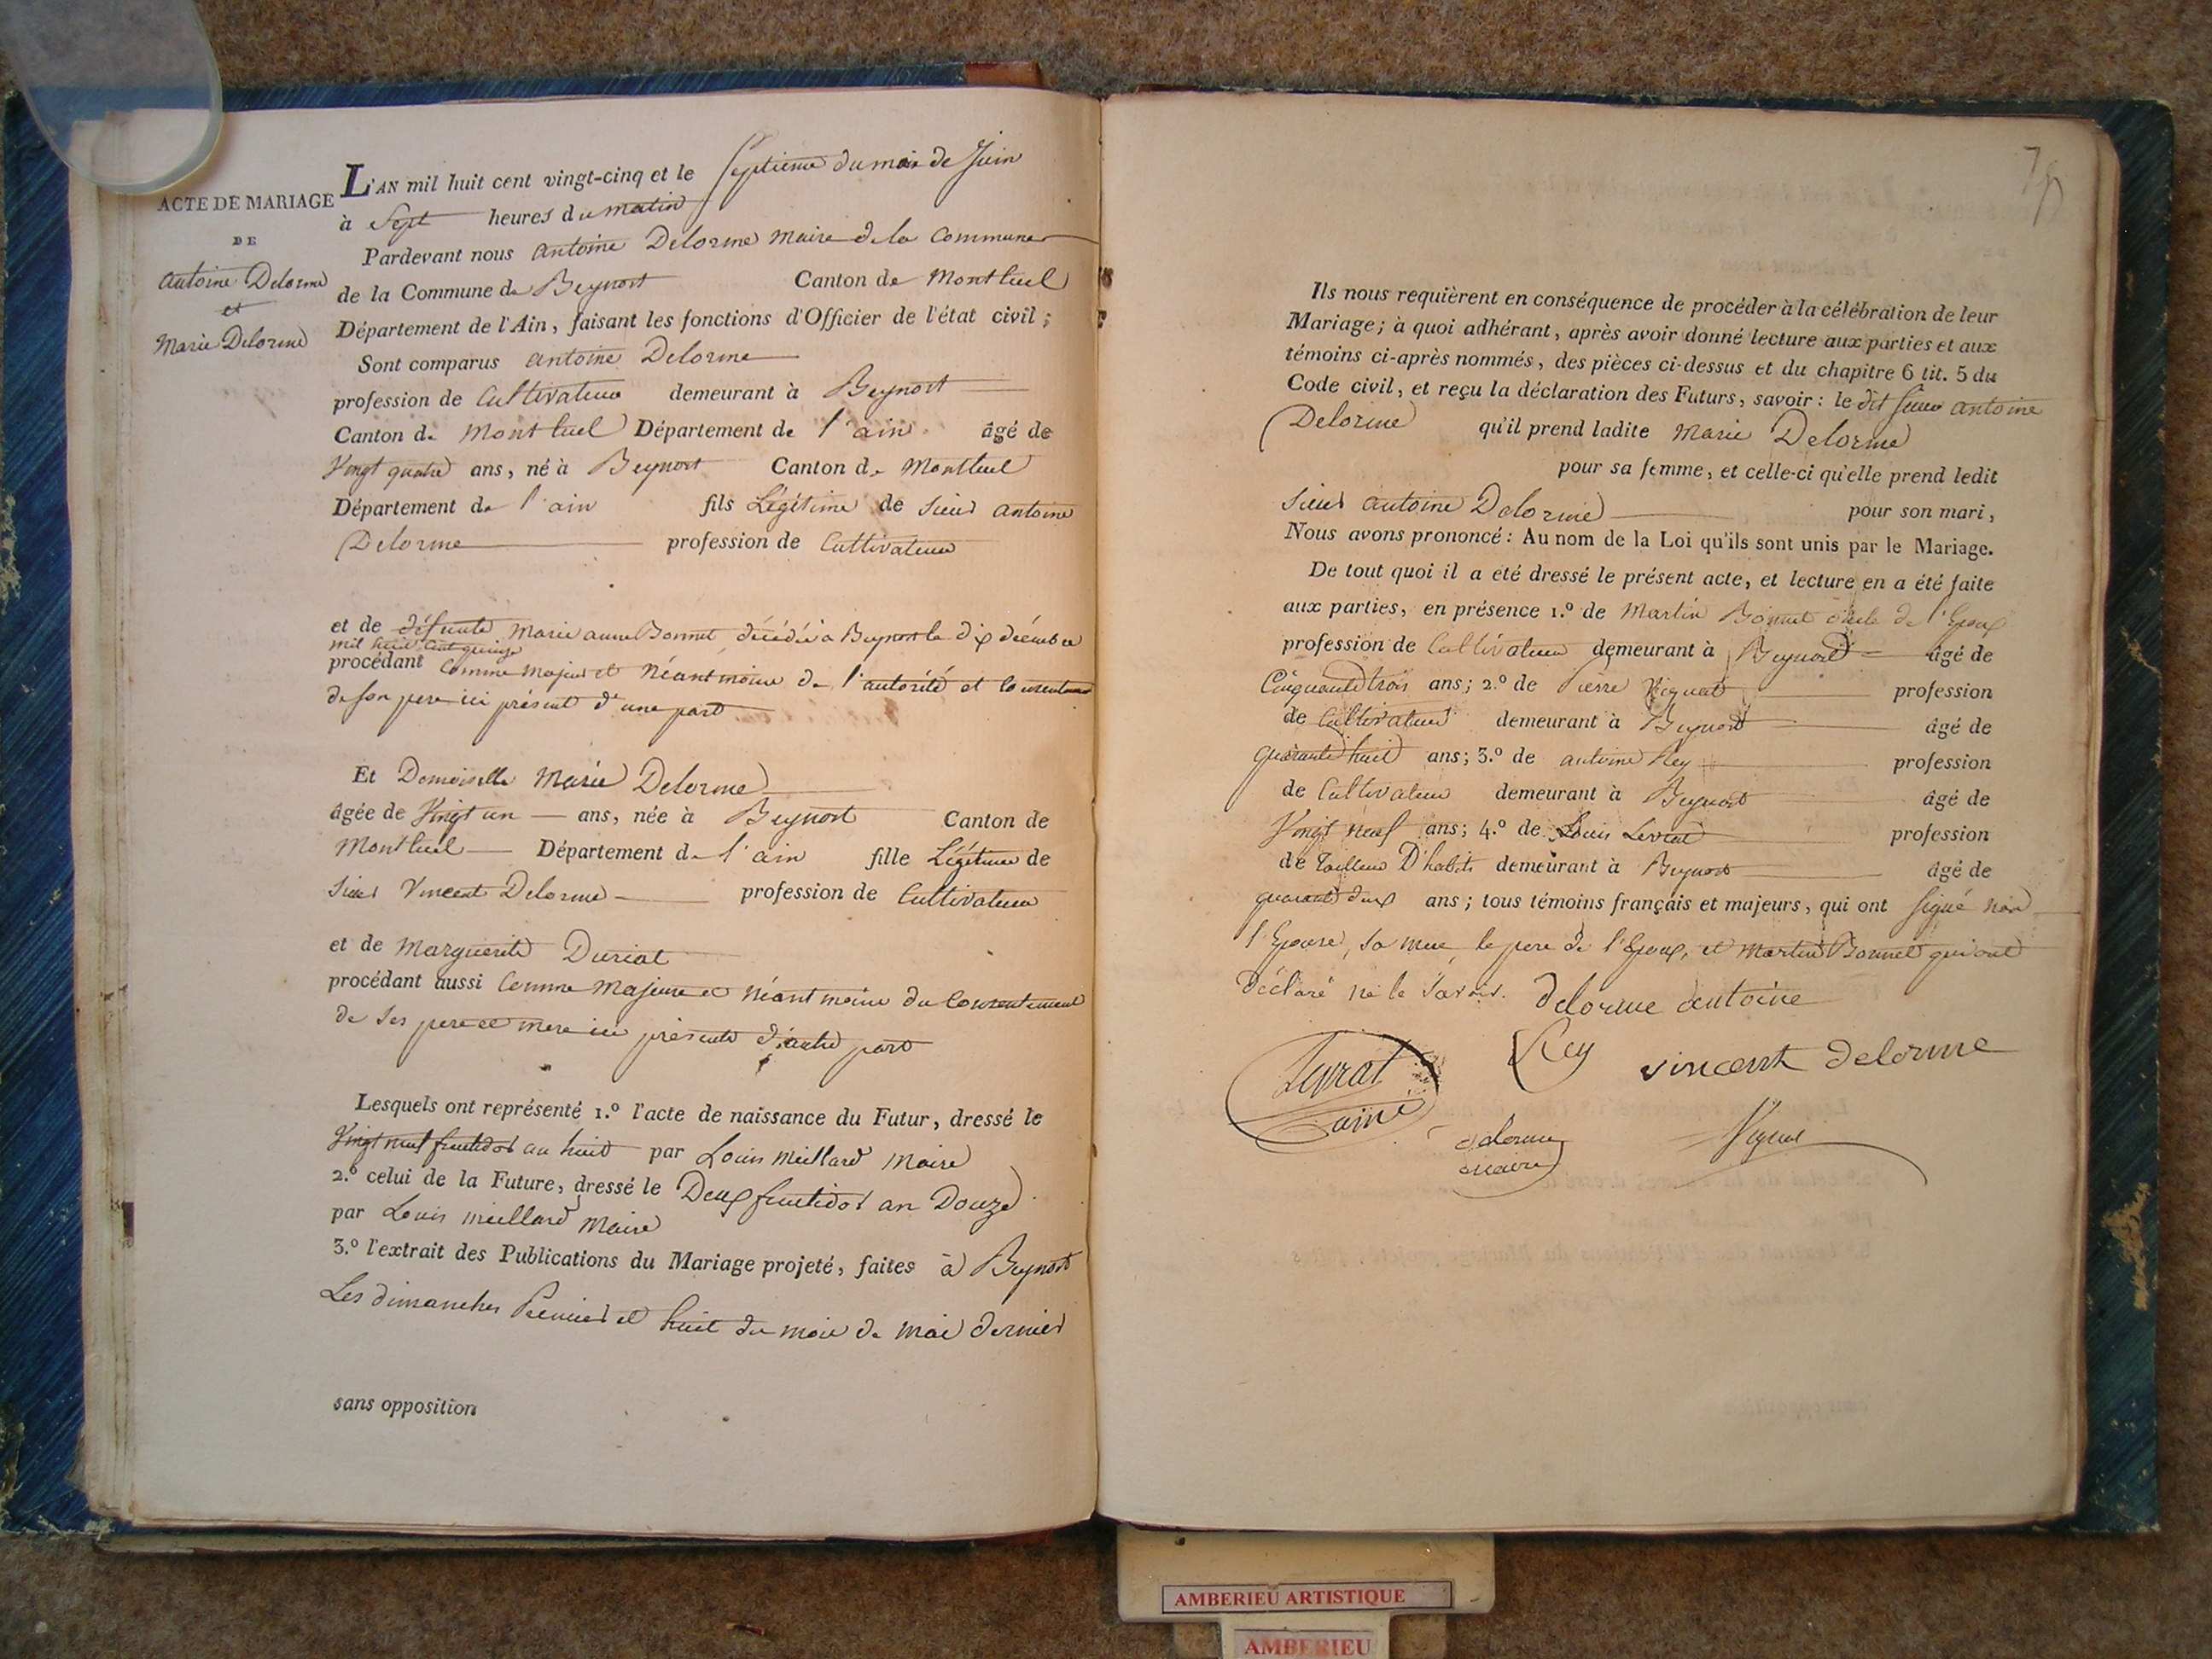 ACTE DE MARIAGE
DE
Antoine Delorme
et
Marie Delorme
L'AN mil huit cent vingt-cinq et le Septieme du mois de Juin
à Sept heures du matin
Pardevant nous antoine Delorme maire de la Commune
de la Commune de Beynost Canton de Montluel
Département de l'Ain, faisant les fonctions d'Officier de l'état civil;
Sont comparus antoine Delorme
profession de Cultivateur demeurant à Beynost
Canton de Montluel Département de l'ain âgé de
Vingt quatre ans, né à Beynost Canton de Montluel
Département de l'ain fils Légitime de sieur antoine
Delorme profession de Cultivateur
et de défunte Marie anne Bonnet décédée à Beynost le dix décembre
mil huit cent quinze
procédant Comme majeur et Néantmoins de l'autorité et Consentement
de son pere ici présent d'une part
Et Demoiselle Marie Delorme
âgée de Vingt un ans, née à Beynost Canton de
Montluel Département de l'ain fille Légitime de
sieur Vincent Delorme profession de Cultivateur
et de Marguerite Duriat
procédant aussi Comme Majeure et Néantmoins du Consentement
de ses pere et mere ici présents d'autre part
Lesquels ont représenté 1.º l'acte de naissance du Futur, dressé le
Vingt neuf fructidor an huit par Louis Meillard Maire
2.º celui de la Future, dressé le Deux fructidor an Douze
par Louis Meillard Maire
3.º l'extrait des Publications du Mariage projeté, faites à Beynost
Les dimanches Premier et huit du mois de mai dernier
sans opposition
Ils nous requièrent en conséquence de procéder à la célébration de leur
Mariage; à quoi adhérant, après avoir donné lecture aux parties et aux
témoins ci-après nommés, des pièces ci-dessus et du chapitre 6 tit. 5 du
Code civil, et reçu la déclaration des Futurs, savoir: le dit sieur antoine
Delorme qu'il prend ladite Marie Delorme
pour sa femme, et celle-ci qu'elle prend ledit
sieur antoine Delorme pour son mari,
Nous avons prononcé: Au nom de la Loi qu'ils sont unis par le Mariage.
De tout quoi il a été dressé le présent acte, et lecture en a été faite
aux parties, en présence 1.º de Martin Bonnet oncle de l'Epoux
profession de Cultivateur demeurant à Beynost âgé de
Cinquante trois ans; 2.º de Pierre profession
de Cultivateur demeurant à Beynost âgé de
quarante huit ans; 3.º de antoine Rey profession
de Cultivateur demeurant à Beynost âgé de
Vingt neuf ans; 4.º de Louis Levrat profession
de Tailleur D'habits demeurant à Beynost âgé de
quarante deux ans; tous témoins français et majeurs, qui ont signé non
l'Epouse, sa mere, le pere de l'Epoux, et Martin Bonnet qui ont
Déclaré ne le savoir. delorme antoine
Rey vincent delorme
Levrat
ainé
delorme
maire
AMBERIEU ARTISTIQUE
AMBERIEU